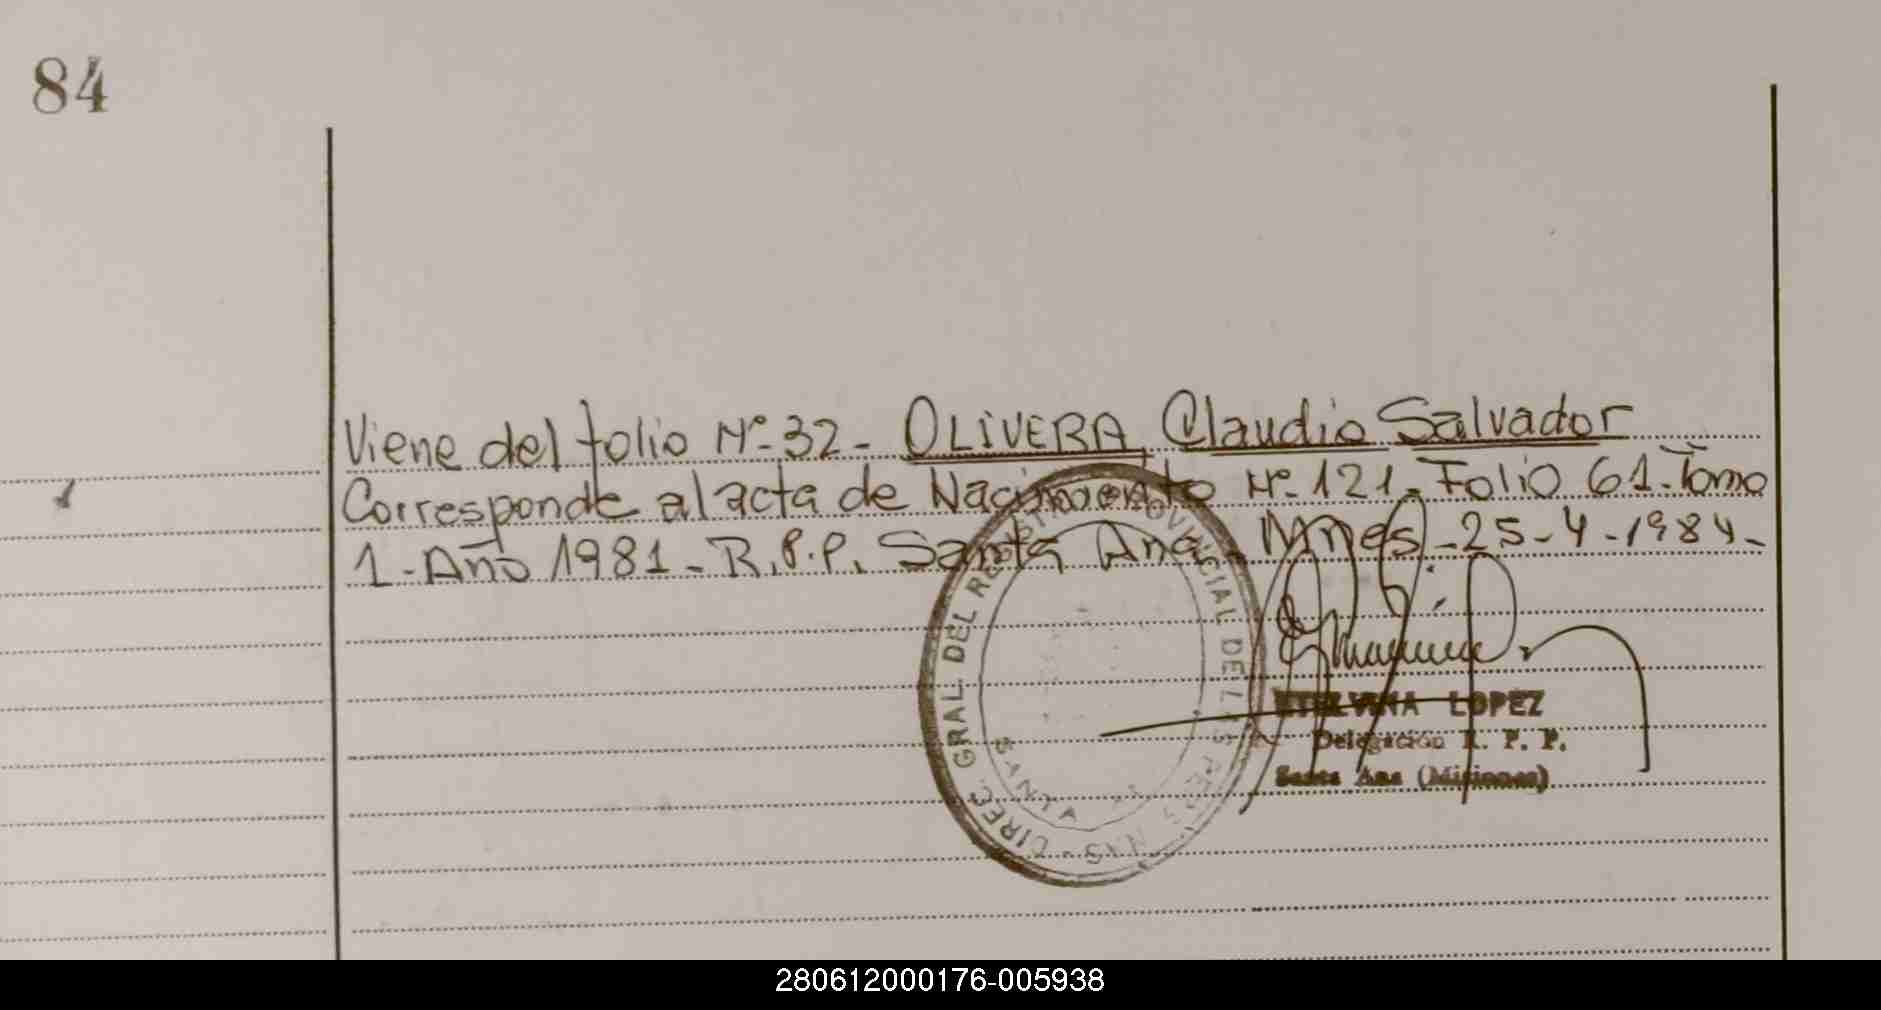 84
Viene del folio Nº-32- OLIVERA, Claudio Salvador
Corresponde al acta de Nacimiento Nº-121- Folio 61-Tomo
1-Año 1981-R.P.P. Santa Ana - Mnes-25-4-1984-
DIREC. GRAL. DEL REGISTRO PROVINCIAL DE LAS PERS. MIS.
SANTA
ETELVINA LOPEZ
Delegación R. P. P.
Santa Ana (Misiones)
280612000176-005938